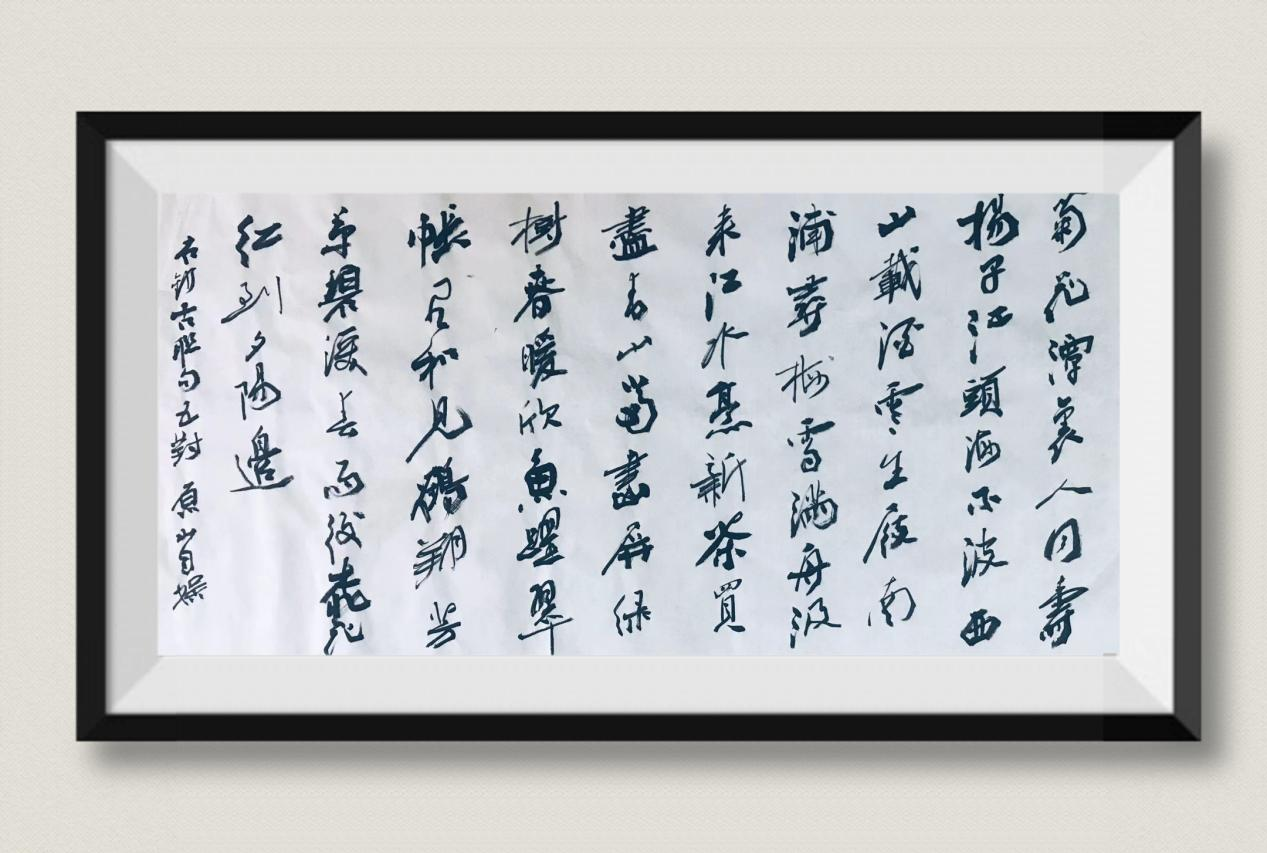 菊花潭裏人同壽
揚子江頭海不波西
山載酒雲生屐南
浦尋梅雪滿舟汲
來江水烹新茶買
盡青山當畫屏綠
樹春暖欣魚躍翠
帳風和見鶴翔芳
草碧浸春雨後飛花
紅到夕陽邊
右錄古聯句五對